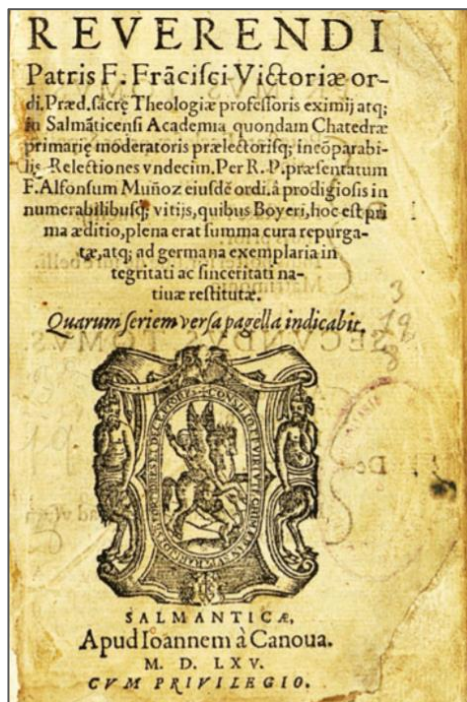 REVERENDI
Patris F. Frãcisci Victoriæ or-
di. Præd. sacrę Theologiæ professoris eximij atq;
in Salmãticensi Academia quondam Chatedræ
primarię moderatoris prælectorisq; incõparabi-
lis Relectiones vndecim. Per R. P. præsentatum
F. Alfonsum Muñoz eiusdẽ ordi. à prodigiosis in
numerabilibusq; vitijs, quibus Boyeri, hoc est pri
ma æditio, plena erat summa cura repurga-
tæ, atq; ad germana exemplaria in
tegritati ac sinceritati na-
tiuæ restitutæ.
Quarum seriem versa pagella indicabit.
SALMANTICÆ,
Apud Ioannem à Canoua.
M. D. LXV.
CVM PRIVILEGIO.